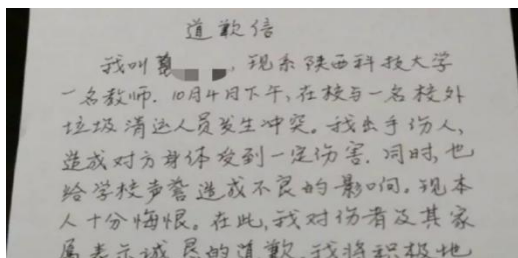 道歉信
我叫，现系陕西科技大学
一名教师. 10月4日下午,在校与一名校外
垃圾清运人员发生冲突。我出手伤人,
造成对方身体受到一定伤害.同时,也
给学校声誉造成不良的影响。现本
人十分悔恨。在此,我对伤者及其家
属表示诚恳的道歉.我将积极地